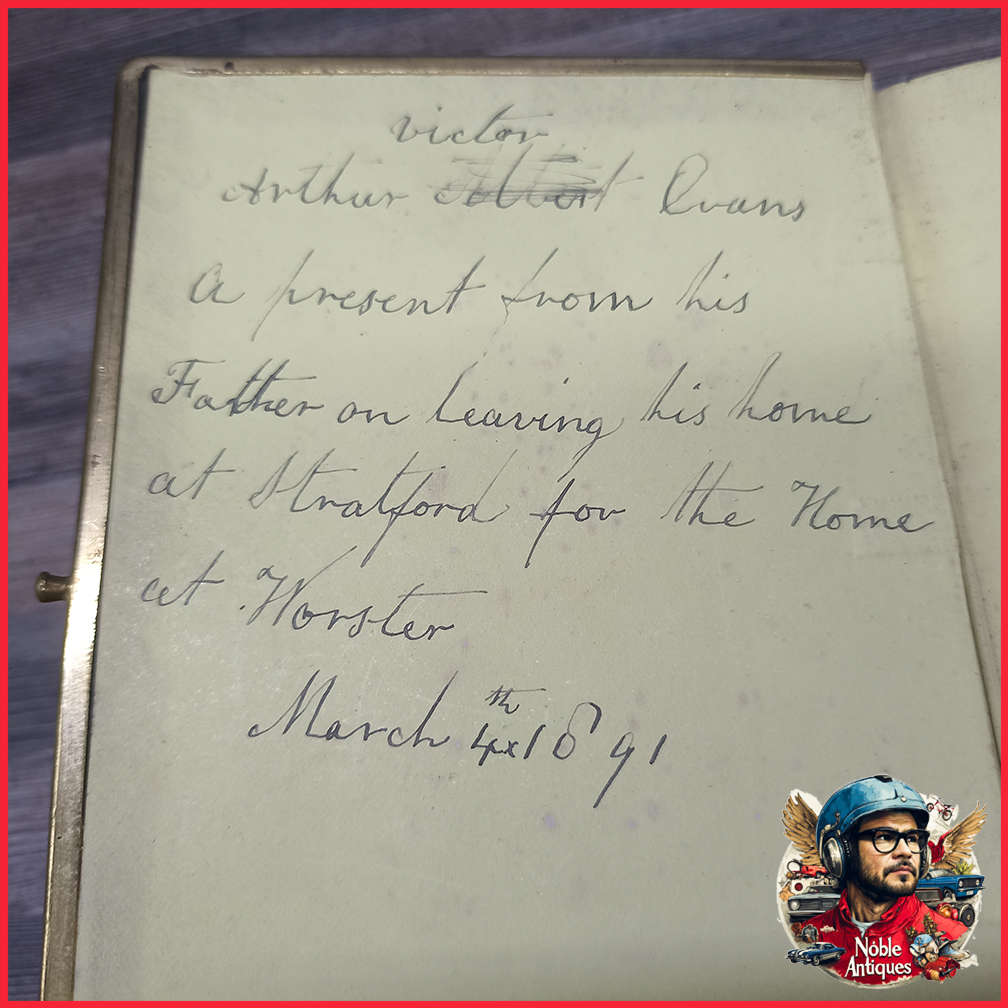 victor
Arthur Albert Evans
A present from his
Father on leaving his home
at Stratford for the Home
at Worster
March 4th 1891
Noble
Antiques